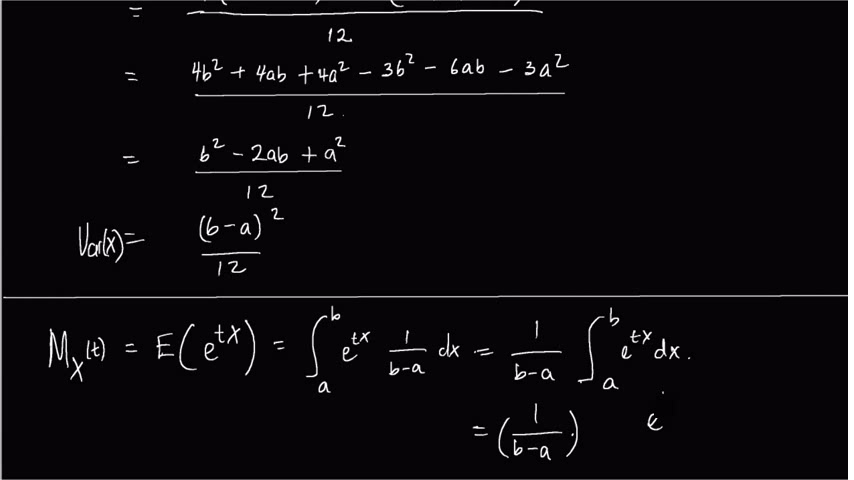 = 12
= 4b² + 4ab + 4a² - 3b² - 6ab - 3a² / 12.
= b² - 2ab + a² / 12
Var(x) = (b-a)² / 12
M_X(t) = E(e^{tX}) = ∫_a^b e^{tx} 1/(b-a) dx = 1/(b-a) ∫_a^b e^{tx} dx.
= (1/(b-a))